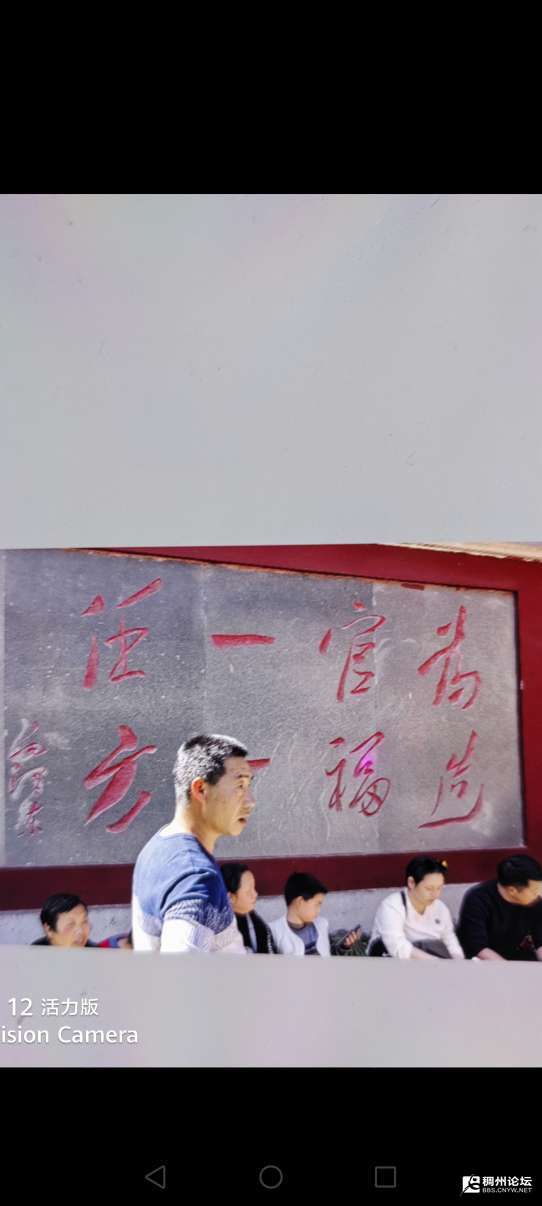 为官一任
造福一方
毛泽东
12 活力版
ision Camera
稠州论坛
BBS.CNYW.NET